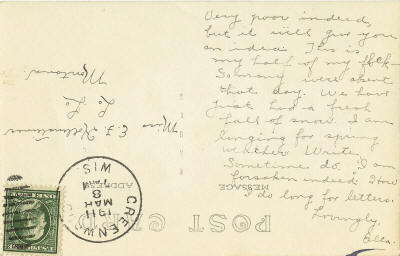 Very poor indeed,
but it will give you
an idea. This is
my half of my flock.
So many were absent
that day. We have
just had a fresh
fall of snow. I am
longing for spring
weather. Write
Sometime do. I am
forsaken indeed. How
I do long for letters.
Lovingly,
Ella.
Miss E. F.
Montreal
MESSAGE
ADDRESS
POST CARD
GREENW
MAR
8
1911
WIS.